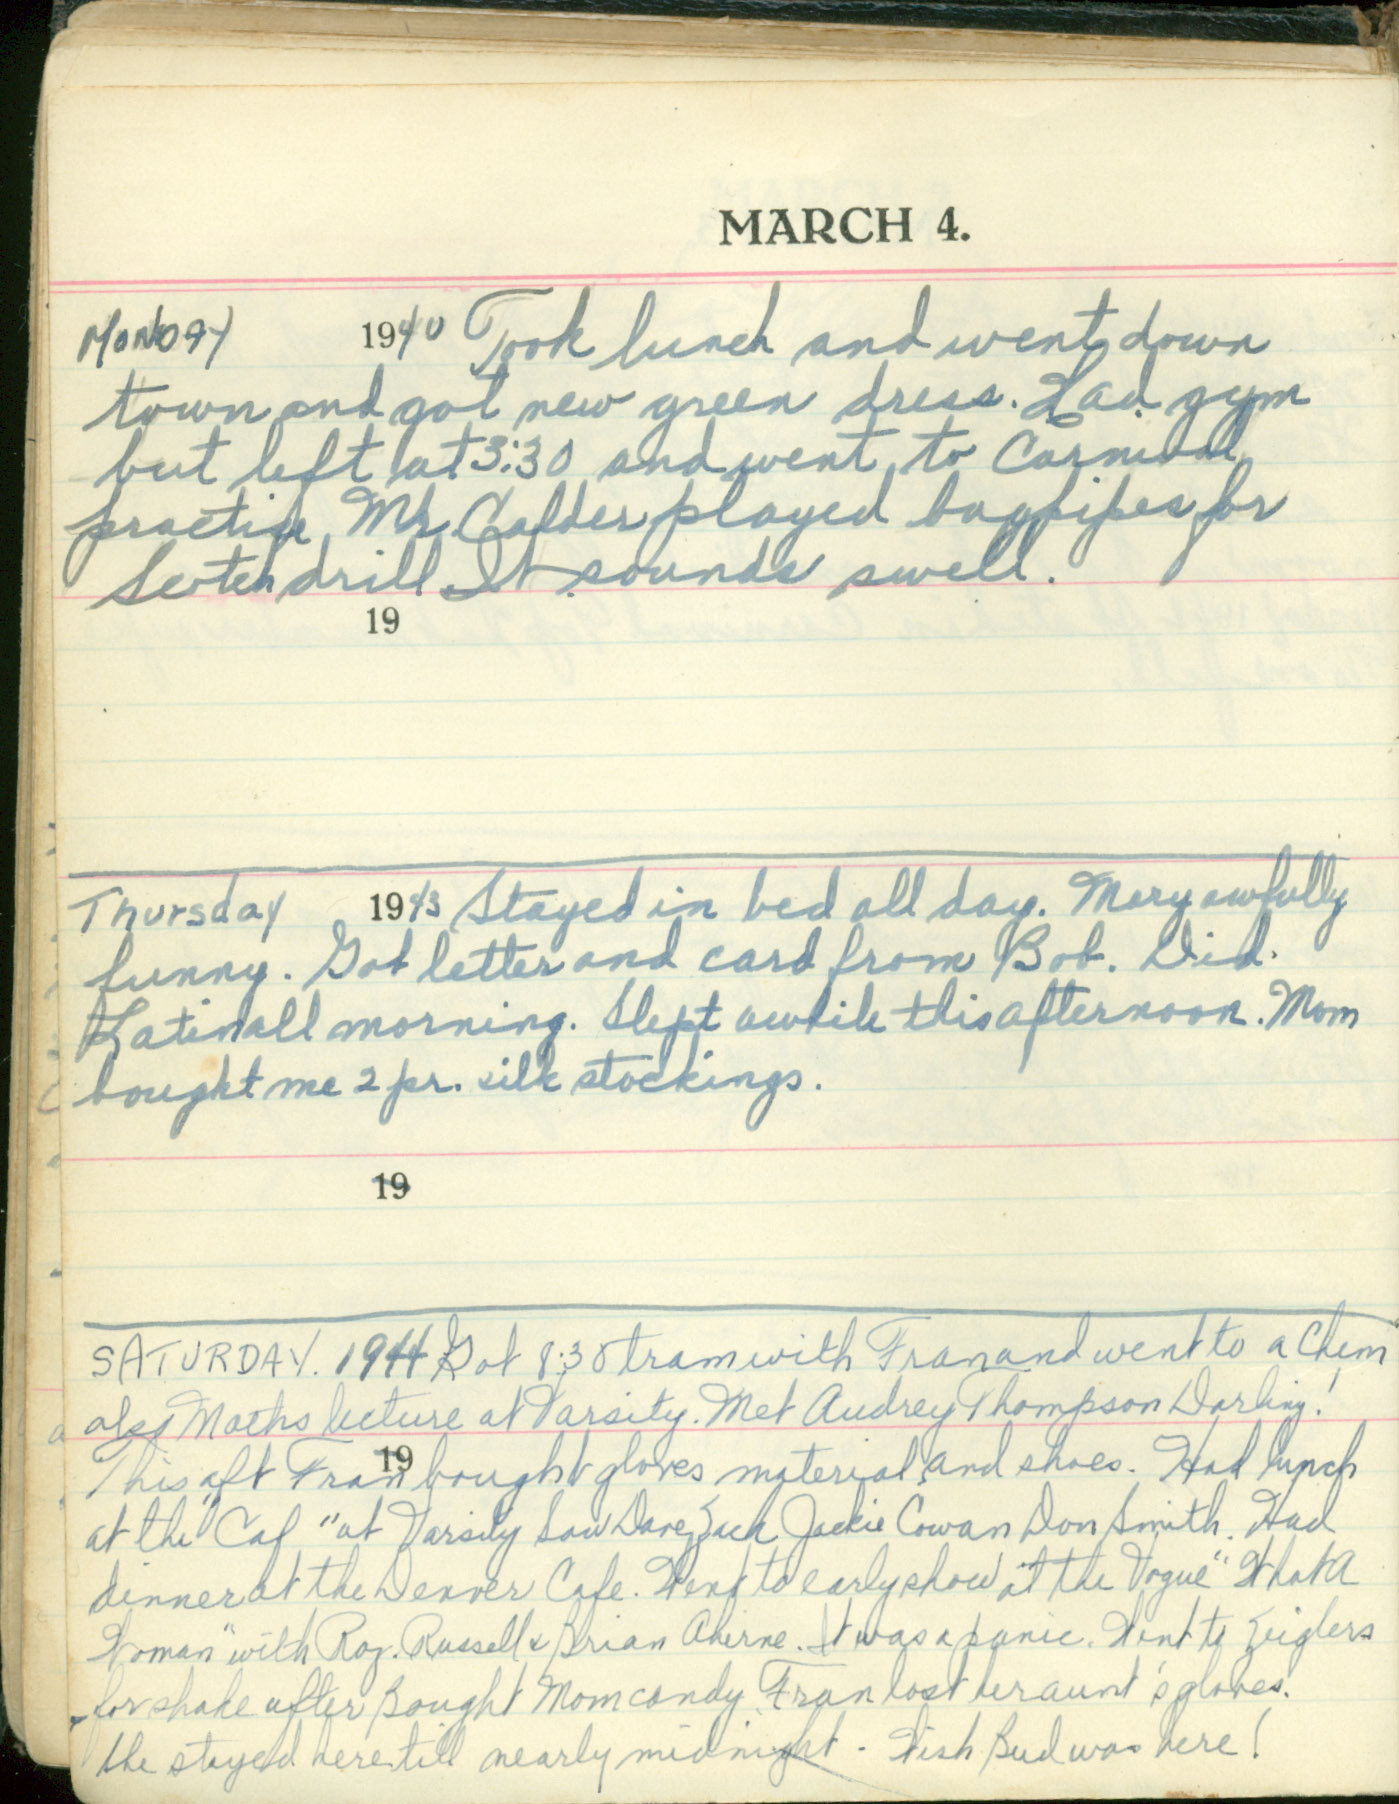 MARCH 4.
MONDAY 1940 Took lunch and went down
town and got new green dress. Had gym
but left at 3:30 and went to Carnival
practise Mr. Calder played bagpipes for
Scotch drill It sounds swell.
19
Thursday 1943 Stayed in bed all day. Mary awfully
funny. Got letter and card from Bob. Did
Latin all morning. Slept awhile this afternoon. Mom
bought me 2 pr. silk stockings.
19
SATURDAY. 1944 Got 8:30 tram with Fran and went to a Chem
also Maths lecture at Varsity. Met Audrey Thompson Darling!
19
This aft Fran bought gloves material and shoes. Had lunch
at the "Caf" at Varsity Saw Dave Zack Jackie Cowan Don Smith. Had
dinner at the Denver Cafe. Went to early show at the Vogue "What A
Woman" with Roz. Russell & Brian Aherne. It was a panic. Went to Zeiglers
for shake after Bought Mom candy Fran lost her aunt's gloves.
She stayed here till nearly midnight - Wish Bud was here!